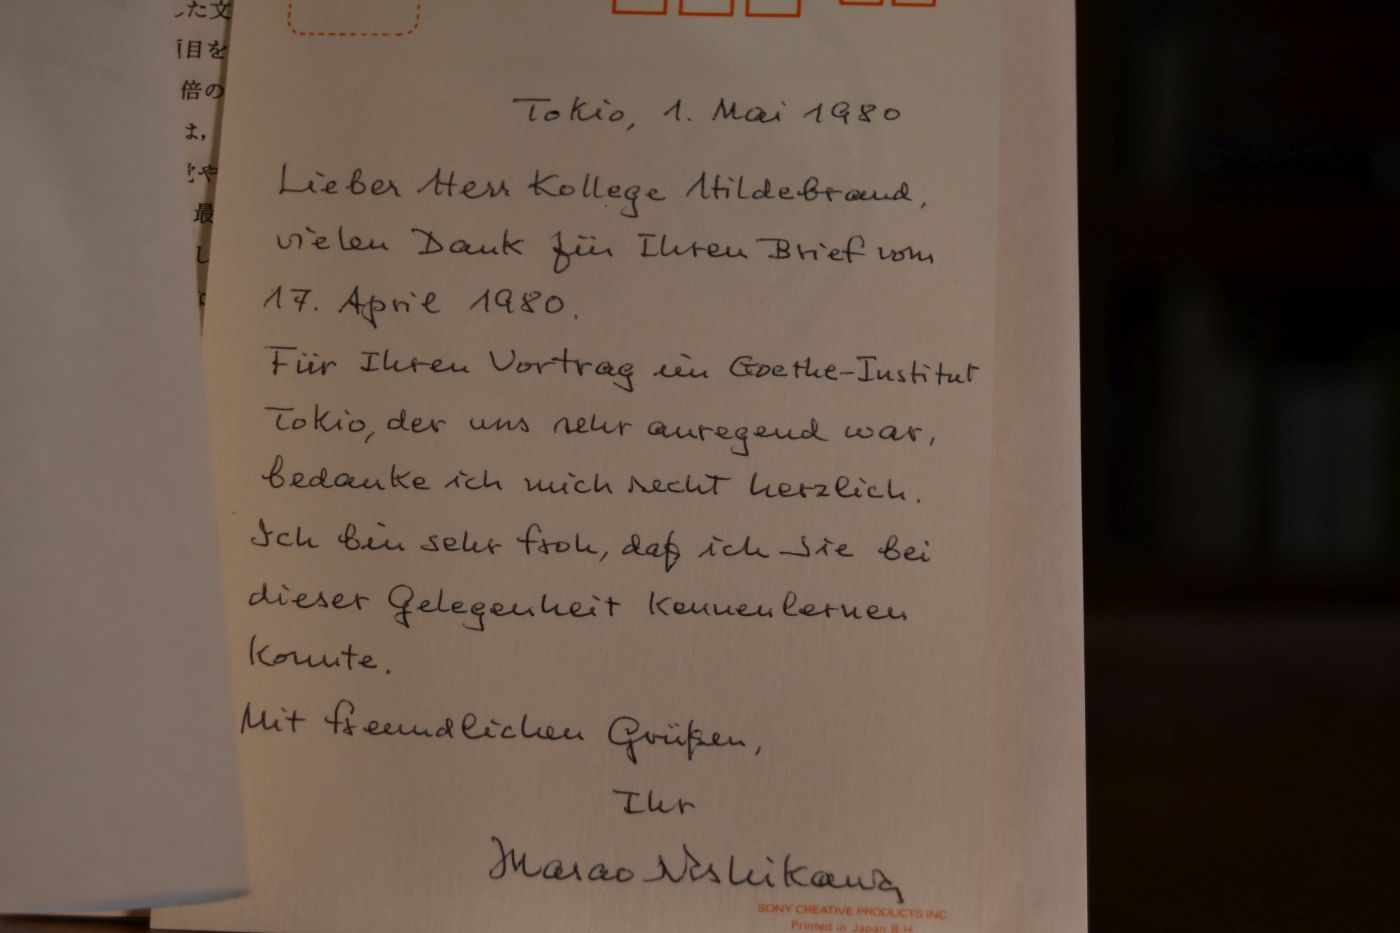 た文
目を
倍の
は,
や
最
し
Tokio, 1. Mai 1980
Lieber Herr Kollege Hildebrand,
vielen Dank für Ihren Brief vom
17. April 1980.
Für Ihren Vortrag im Goethe-Institut
Tokio, der uns sehr anregend war,
bedanke ich mich recht herzlich.
Ich bin sehr froh, daß ich Sie bei
dieser Gelegenheit kennenlernen
konnte.
Mit freundlichen Grüßen,
Ihr
Masao Nishikawa
SONY CREATIVE PRODUCTS INC.
Printed in Japan B-H